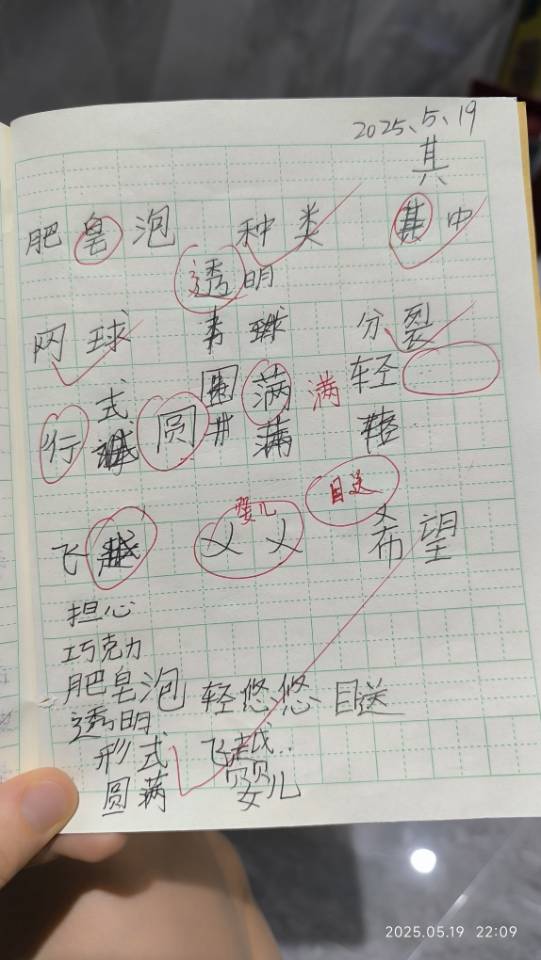 2025.5.19
其
肥皂泡 种类 其中
透明
网球 分裂
式 围 满 满 轻
行 圆
婴儿 目送
飞 乂乂 希望
担心
巧克力
肥皂泡 轻悠悠 目送
透明
形式 飞越..
圆满 婴儿
2025.05.19 22:09